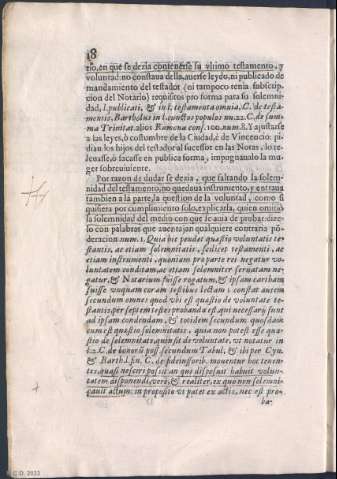 18
rio, en que se dezia contenerse su vltimo testamento, y
voluntad: no constaua della, auerse leydo, ni publicado de
mandamiento del testador (ni tampoco tenia subscrip
cion del Notario) requisitos pro forma para su solemni-
dad, l. publicati, & in l. testamenta omnia, C. de testa-
mentis, Bartholus in l. cunctos populos nu. 22. C. de sum-
ma Trinitat. alios Ramona cons. 100. num. 8. Y ajustarse
a las leyes, ò costumbre de la Ciudad, é de Vincencio: pi-
dian los hijos del testador al sucessor en las Notas, lo re-
leuasse, ò sacasse en publica forma, impugnaualo la mu-
ger sobreuiuiente.
Por razon de dudar se dezia, que faltando la solem-
nidad del testamento, no quedaua instrumento, y entraua
tambien a la parte, la question de la voluntad, como si
quisiera por cumplimiento solo, explicarla, quien omitiò
la solemnidad del medio con que se auia de probar: dize-
lo con palabras que auentajan qualquiere contraria pō-
deracion num. 1. Quia hic pendet quæstio voluntatis te-
stantis, ac etiam solemnitatis, scilicet testamenti, ac
etiam instrumenti, quoniam pro parte rei negatur vo-
luntatem conditam, ac etiam solemniter seruatam ne-
gatur, & Notarium fuisse rogatum, & ipsam cartham
fuisse vnquam coram testibus lectam: constat autem
secundum omnes quod vbi est quæstio de voluntate te-
stantis, per septem testes probanda est, qui necessarij sunt
ad ipsam condendam, & totidem secundum quosdam
cum est quæstio solemnitatis, quia non potest esse quæ-
stio de solemnitate, quin sit de voluntate, vt notatur in
l. 2. C. de bonorū poss. secundum Tabul, & ibi per Cyn.
& Barth. l. fin. C. de fideicomiss. mouentur hoc tenen-
tes, quasi nesciri possit an qui disposuit habuit volun-
tatem disponendi, verè, & realiter, ex quo non solemni-
çauit actum: in proposito vt patet ex actis, nec est pro-
ba-
C.D. 2022